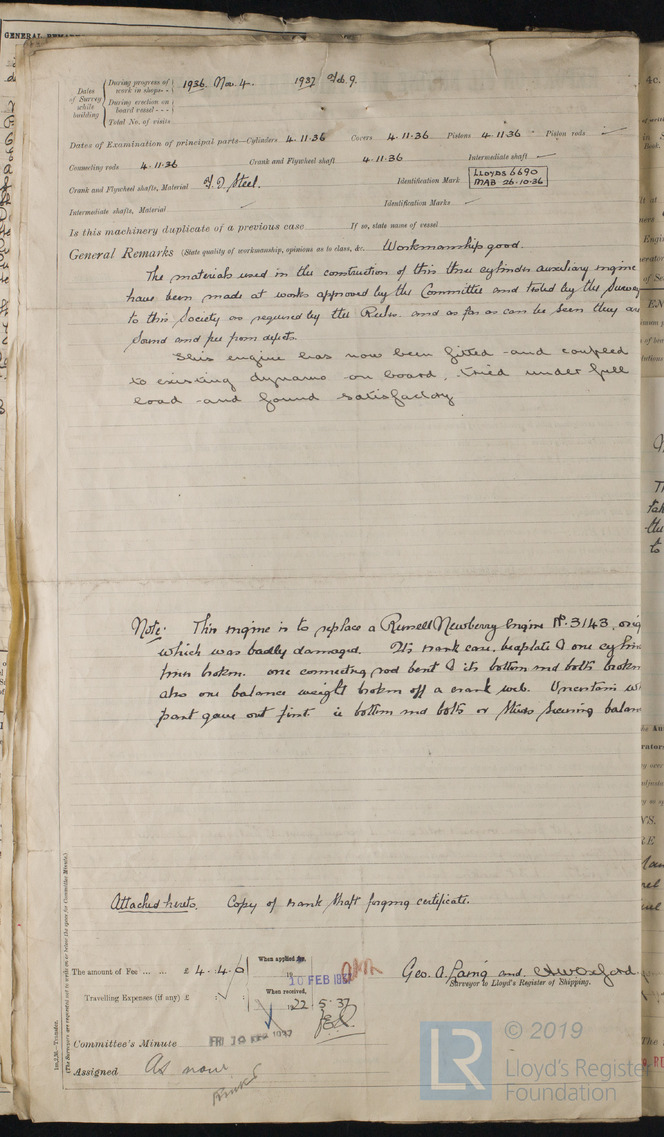 GENERAL REMARKS
Dates of Survey while building
During progress of work in shops - - 1936. Nov. 4. 1937 Feb. 9.
During erection on board vessel - - -
Total No. of visits
Dates of Examination of principal parts—Cylinders 4.11.36 Covers 4.11.36 Pistons 4.11.36 Piston rods
Connecting rods 4.11.36 Crank and Flywheel shaft 4.11.36 Intermediate shaft
Crank and Flywheel shafts, Material Steel. Identification Mark LLOYDS 6690 MAB 26.10.36
Intermediate shafts, Material Identification Marks
Is this machinery duplicate of a previous case If so, state name of vessel
General Remarks (State quality of workmanship, opinions as to class, &c. Workmanship good.
The materials used in the construction of this three cylinder auxiliary engine
have been made at works approved by the Committee and tested by the Survey
to this Society as required by the Rules. and as far as can be seen they are
sound and free from defects.
This engine has now been fitted and coupled
to existing dynamo on board, tried under full
load and found satisfactory
Note: This engine is to replace a Russell Newberry Engine No. 3143, orig
which was badly damaged. Its crank case, bedplate & one cylin
broken. one connecting rod bent & its bottom end bolts broken
also one balance weight broken off a crank web. Uncertain w
part gave out first. ie bottom end bolts or studs securing balan
Attached hereto. Copy of crank shaft forging certificate.
The amount of Fee ... ... £ 4.4.0
Travelling Expenses (if any) £
When applied for, 10 FEB 1937
When received, 22.5.37
Geo. A. Laing and
Surveyor to Lloyd's Register of Shipping.
Committee's Minute FRI 19 FEB 1937
Assigned As now
(The Surveyors are requested not to write on or below the space for Committee Minute.)
LR © 2019
Lloyd's Register
Foundation